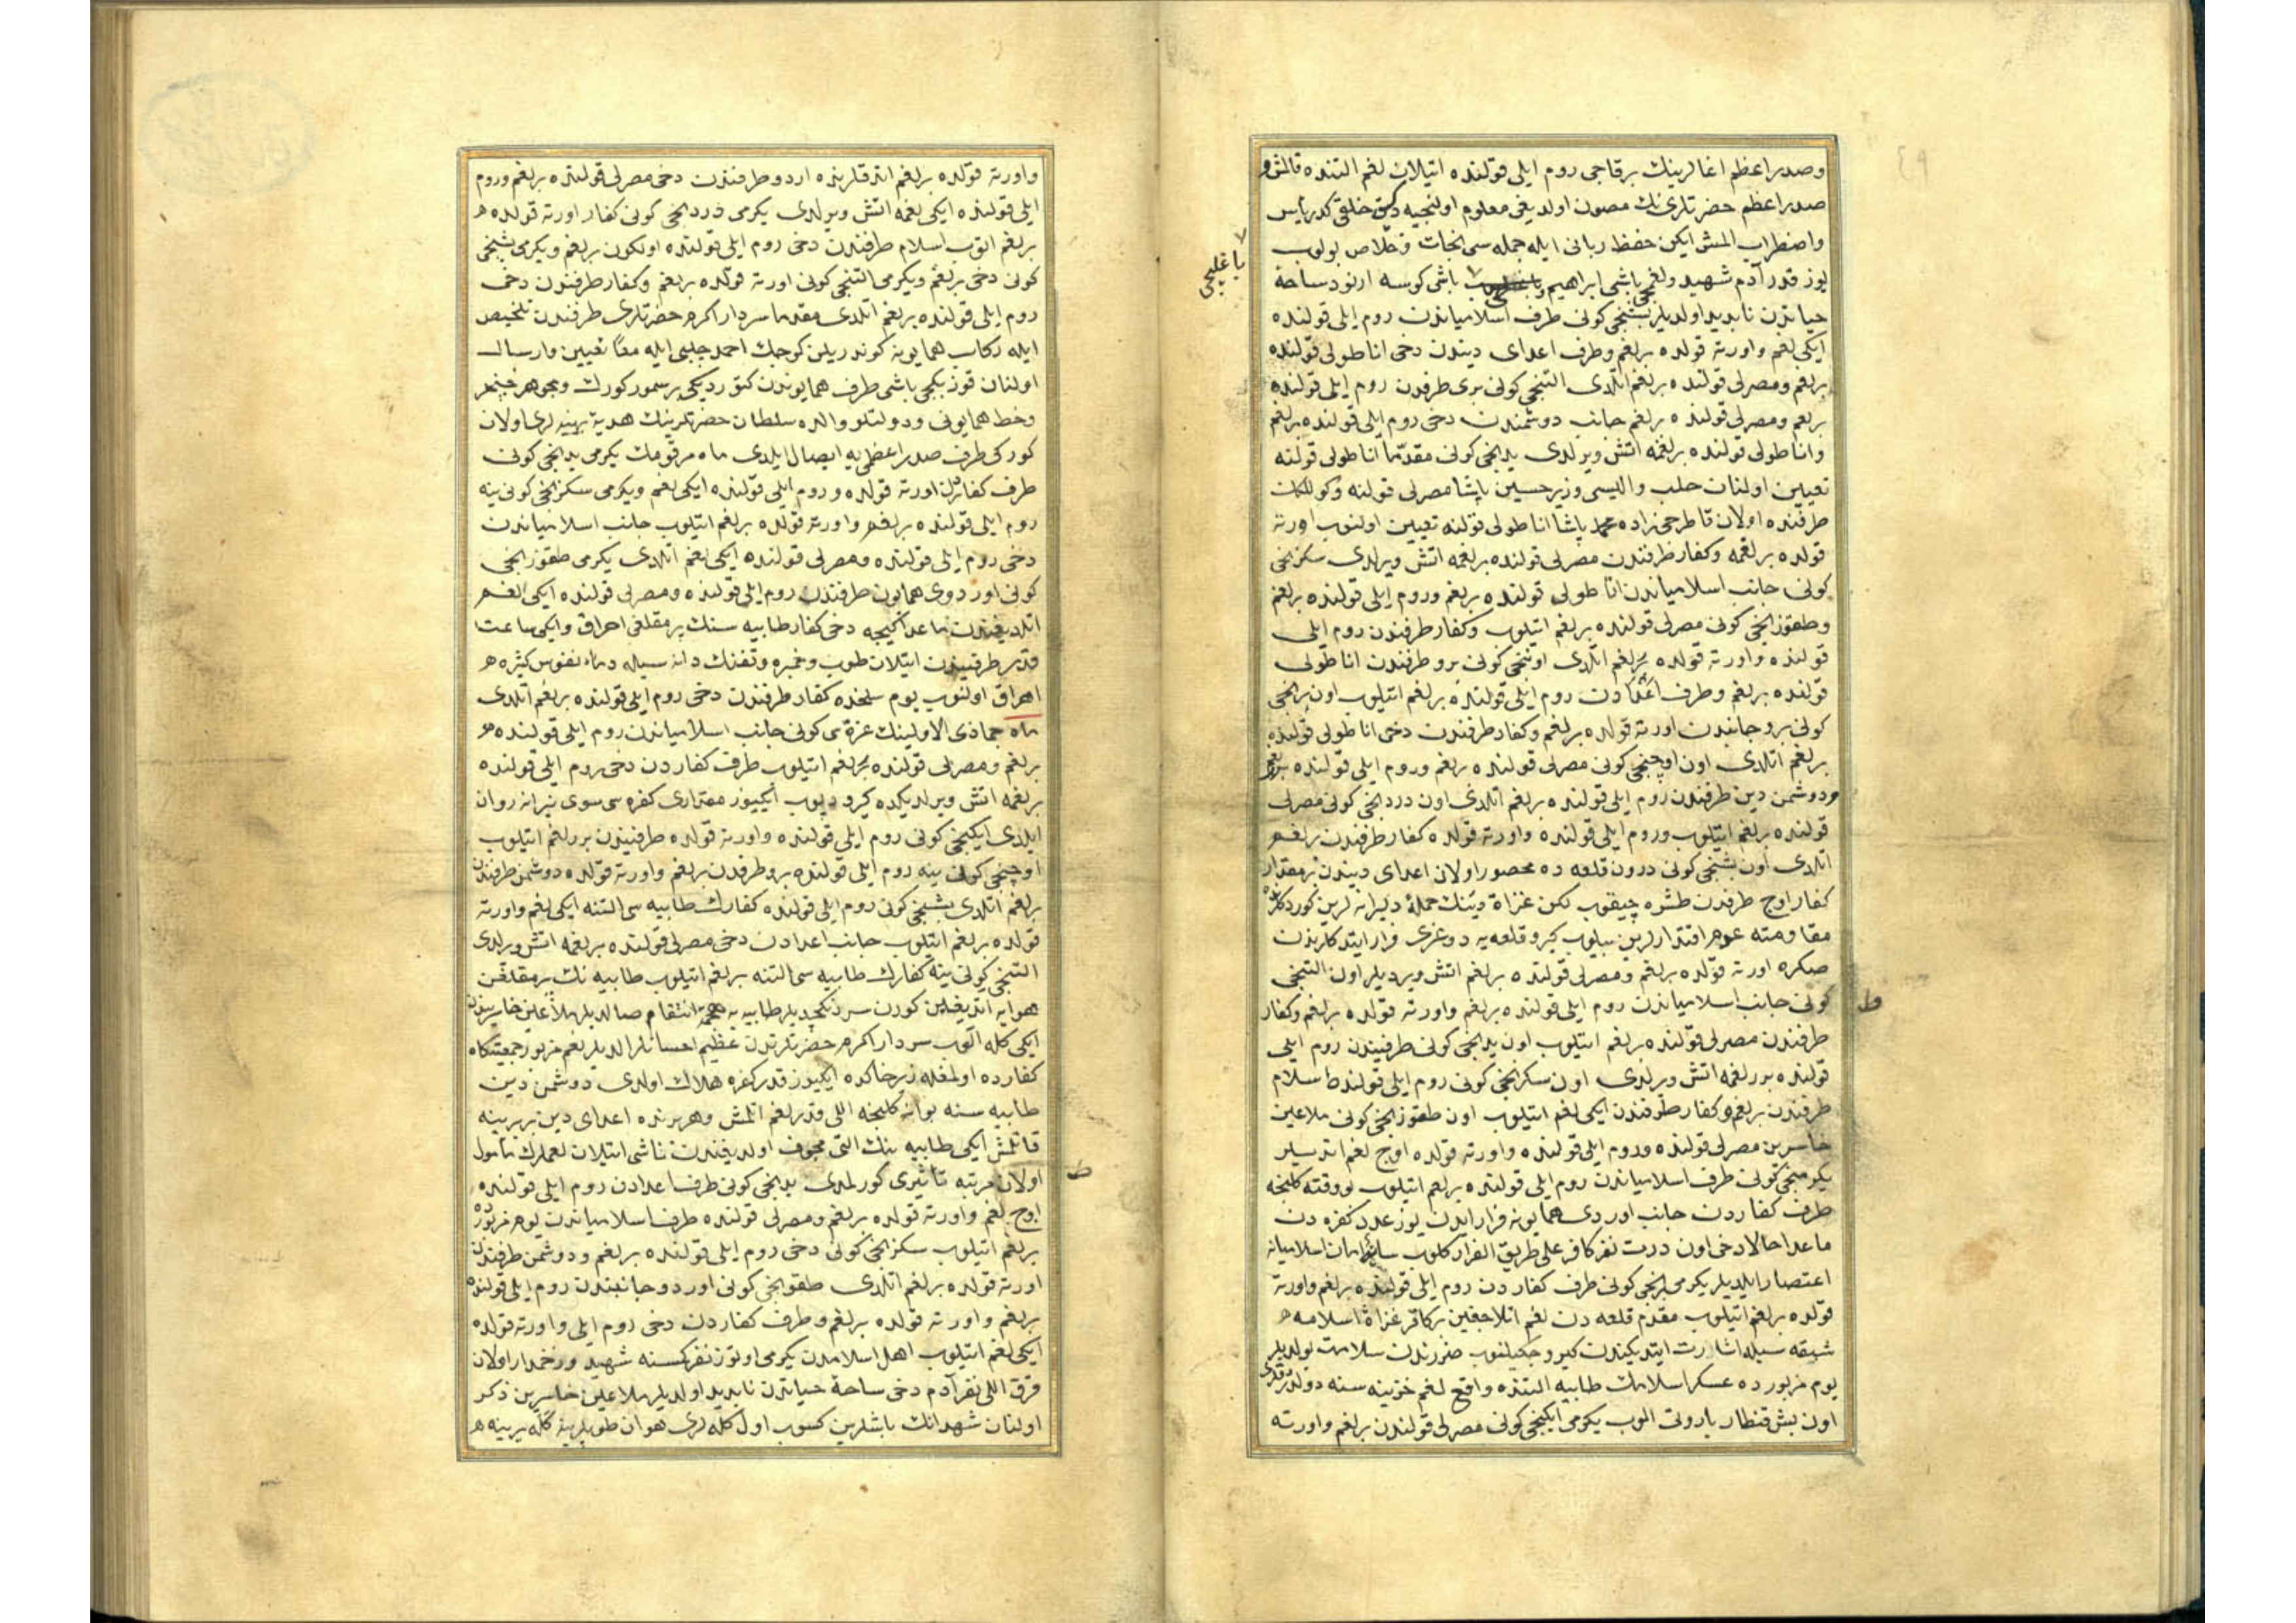 وصدر اعظم اغالرینك برقاجی روم ایلی قولنده اتیلان لغم التنده قالمش و
صدر اعظم حضرتلری نك مصون اولدیغی معلوم اولنجیه دكین خلقی كدر یأس
واضطراب المش ایكن حفظ ربانی ایله جمله سی نجات و خلاص بولوب
یوز قدر آدم شهید ولغمجی باشی ابراهیم و باشی كوسه ارنود ساحهٔ
یاغلیجی
حیاتدن نابدید اولدیلر بشنجی كونی طرف اسلامیاندن روم ایلی قولنده
ایكی لغم واورته قولده برلغم وطرف اعدای دیندن دخی اناطولی قولنده
برلغم ومصرلی قولنده برلغم اتلدی التنجی كونی بری طرفدن روم ایلی قولنده
برلغم ومصرلی قولنده برلغم جانب دوشمندن دخی روم ایلی قولنده برلغم
واناطولی قولنده برلغمه اتش ویرلدی یدنجی كونی مقدّما اناطولی قولنه
تعیین اولنان حلب والیسی وزیر حسین پاشا مصرلی قولنه وكوللكات
طرفنده اولان قاطرجی زاده محمد پاشا اناطولی قولنه تعیین اولنوب اورته
قولده برلغمه وكفار طرفندن مصرلی قولنده برلغمه اتش ویرلدی سكزنجی
كونی جانب اسلامیاندن اناطولی قولنده برلغم وروم ایلی قولنده برلغم
وطقوزنجی كونی مصرلی قولنده برلغم اتیلوب وكفار طرفندن روم ایلی
قولنده واورته قولده برلغم اتلدی اوننجی كونی برو طرفندن اناطولی
قولنده برلغم وطرف اعدادن روم ایلی قولنده برلغم اتیلوب اون برنجی
كونی برو جانبدن اورته قولده برلغم وكفار طرفندن دخی اناطولی قولنده
برلغم اتلدی اون اوچنجی كونی مصرلی قولنده برلغم وروم ایلی قولنده برلغم
ودوشمن دین طرفندن روم ایلی قولنده برلغم اتلدی اون دردنجی كونی مصرلی
قولنده برلغم اتیلوب وروم ایلی قولنده واورته قولده كفار طرفندن برلغم
اتلدی اون بشنجی كونی درون قلعه ده محصور اولان اعدای دیندن بر مقدار
كفار اوج طرفدن طشره چیقوب لكن غزاة دینك حملهٔ دلیرانه لرین كوردكلرنده
مقاومته عدم اقتدارلرین بیلوب كیرو قلعه یه دوغری فرار ایتدكلرندن
صكره اورته قولده برلغم ومصرلی قولنده برلغم اتش ویردیلر اون التنجی
كونی جانب اسلامیاندن روم ایلی قولنده برلغم واورته قولده برلغم وكفار
ط
طرفندن مصرلی قولنده برلغم اتیلوب اون یدنجی كونی طرفیندن روم ایلی
قولنده بررلغمه اتش ویرلدی اون سكزنجی كونی روم ایلی قولنده اسلام
طرفندن برلغم وكفار طرفندن ایكی لغم اتیلوب اون طقوزنجی كونی ملاعین
خاسرین مصرلی قولنده وروم ایلی قولنده واورته قولده اوج لغم اتدیلر
یكرمنجی كونی طرف اسلامیاندن روم ایلی قولنده برلغم اتیلوب بووقته كلنجه
طرف كفاردن جانب اوردی همایونه فرار ایدن یوز عدد كفره دن
ماعدا حالا دخی اون درت نفر كافر علی طریق الفرار كلوب سایهٔ امان اسلامیانه
اعتصار ایلدیلر یكرمی برنجی كونی طرف كفاردن روم ایلی قولنده برلغم واورته
قولده برلغم اتیلوب مقدم قلعه دن لغم اتلاجغین بركافر غزاة اسلامه
شبقه سیله اشارت ایتدیكندن كیرو چكیلنوب ضررندن سلامت بولدیلر
یوم مزبورده عسكر اسلامك طابیه التنده واقع لغم خزینه سنه
اون بش قنطار باروتی الوب یكرمی ایكنجی كونی مصرلی قولندن برلغم واورته
واورته قولده برلغم اتدقلرنده اردو طرفندن دخی مصرلی قولنده برلغم وروم
ایلی قولنده ایكی لغمه اتش ویرلدی یكرمی دردنجی كونی كفار اورته قولده
برلغم اتوب اسلام طرفندن دخی روم ایلی قولنده اولكون برلغم ویكرمی بشنجی
كونی دخی برلغم ویكرمی التنجی كونی اورته قولده برلغم وكفار طرفندن دخی
روم ایلی قولنده برلغم اتلدی مقدما سردار اكرم حضرتلری طرفندن تلخیص
ایله ركاب همایونه كوندریلن كوجك احمد چلبی ایله معًا تعیین وارسال
اولنان قوز بكجی باشی طرف همایوندن كتوردیكی بر سمور كورك ومجوهر خنجر
وخط همایونی ودولتلو والده سلطان حضرتلرینك هدیهٔ بهیه لری اولان
كوركی طرف صدر اعظمی یه ایصال ایلدی ماه مرقومك یكرمی یدنجی كونی
طرف كفاردن اورته قولده وروم ایلی قولنده ایكی لغم ویكرمی سكزنجی كونی ینه
روم ایلی قولنده برلغم واورته قولده برلغم اتیلوب جانب اسلامیاندن
دخی روم ایلی قولنده ومصرلی قولنده ایكی لغم اتلدی یكرمی طقوزنجی
كونی اوردوی همایون طرفندن روم ایلی قولنده ومصرلی قولنده ایكی لغم
اتلدیغندن ماعدا كیجه دخی كفار طابیه سنك بر مقلغی احراق وایكی ساعت
قدر طرفیندن اتیلان طوب وخمبره وتفنك دانه سیله دماء نفوس كثیره
اهراق اولنوب یوم سلخده كفار طرفندن دخی روم ایلی قولنده برلغم اتلدی
ماه جمادی الاولینك غره سی كونی جانب اسلامیاندن روم ایلی قولنده
برلغم ومصرلی قولنده برلغم اتیلوب طرف كفاردن دخی روم ایلی قولنده
برلغمه اتش ویرلدیكده كیرو دپوب ایكیوز مقداری كفره سی سوی نیرانه روان
ایلدی ایكنجی كونی روم ایلی قولنده واورته قولده طرفیندن بررلغم اتیلوب
اوچنجی كونی ینه روم ایلی قولنده برو طرفدن برلغم واورته قولده دوشمن طرفندن
برلغم اتلدی بشنجی كونی روم ایلی قولنده كفارك طابیه سی التنه ایكی لغم واورته
قولده برلغم اتیلوب جانب اعدادن دخی مصرلی قولنده برلغمه اتش ویرلدی
التنجی كونی ینه كفارك طابیه سی التنه برلغم اتیلوب طابیه نك بر مقلغین
هوایه اتدیغین كورن سردنكجدیلر طابیه یه هجمهٔ انتقام صالدیلر ملاعین خاسریندن
ایكی كله الوب سردار اكرم حضرتلرندن عظیم احسانلر الدیلر لغم مزبور جمعیتكاه
كفارده اولمغله زیر خاكده ایكیوز قدر كفره هلاك اولدی دوشمن دین
طابیه سنه بوانه كلنجه اللی قدر لغم اتلمش وهر برنده اعدای دین بربرینه
قاتلمش ایكی طابیه نك التی مجوف اولدیغندن ناشی اتیلان لغملرك مأمول
اولان مرتبه تأثیری كورلمدی یدنجی كونی طرف اعدادن روم ایلی قولنده
ط
اوج لغم واورته قولده برلغم ومصرلی قولنده طرف اسلامیاندن یوم مزبورده
برلغم اتیلوب سكزنجی كونی دخی روم ایلی قولنده برلغم ودوشمن طرفندن
اورته قولده برلغم اتلدی طقوزنجی كونی اوردو جانبندن روم ایلی قولنده
برلغم واورته قولده برلغم وطرف كفاردن دخی روم ایلی واورته قولده
ایكی لغم اتیلوب اهل اسلامدن یكرمی اوتوز نفر كسنه شهید وزخمدار اولان
قرق اللی نفر آدم دخی ساحهٔ حیاتدن نابدید اولدیلر ملاعین خاسرین ذكر
اولنان شهدانك باشلرین كسوب اول كله لری هوان طوپلرینه كله یرینه